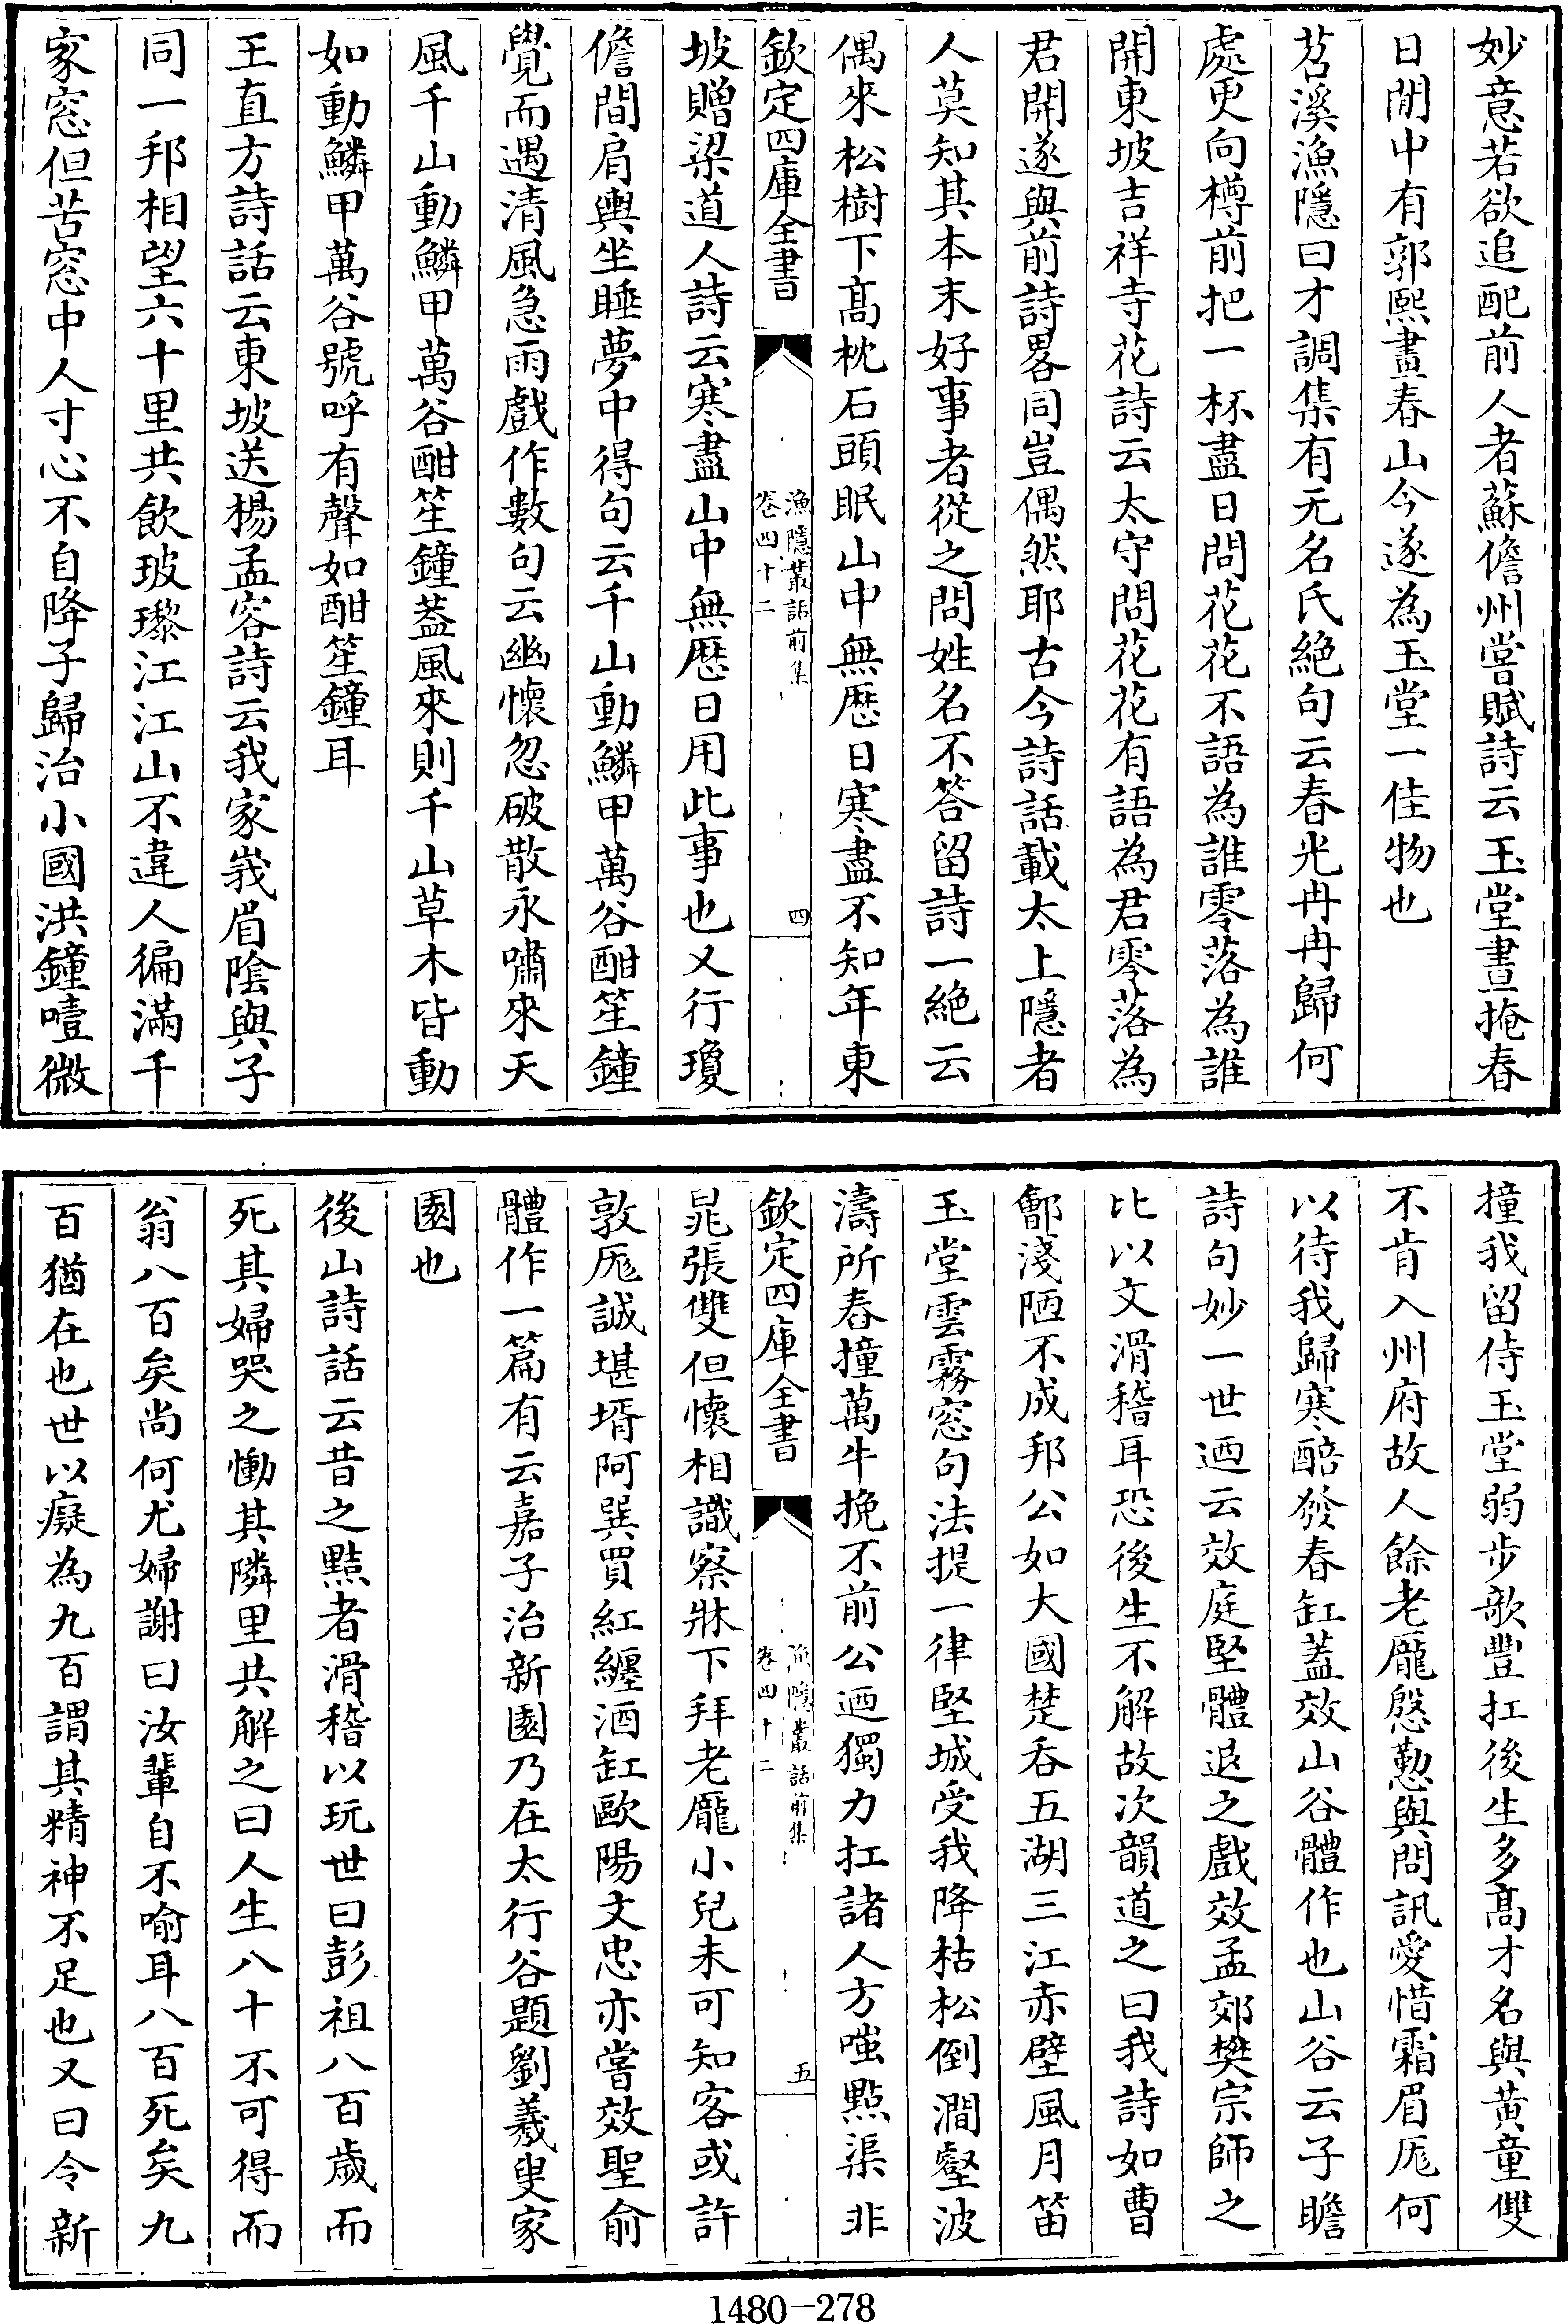 妙意若欲追配前人者蘇儋州嘗賦詩云玉堂晝掩春
日閒中有郭熙畫春山今遂為玉堂一佳物也
苕溪漁隱曰才調集有无名氏絶句云春光冉冉歸何
處更向樽前把一杯盡日問花花不語為誰零落為誰
開東坡吉祥寺花詩云太守問花花有語為君零落為
君開遂與前詩畧同豈偶然耶古今詩話載太上隱者
人莫知其本末好事者從之問姓名不答留詩一絶云
偶來松樹下髙枕石頭眠山中無厯日寒盡不知年東
欽定四庫全書
漁隱叢話前集
卷四十二
四
坡贈梁道人詩云寒盡山中無厯日用此事也又行瓊
儋間肩輿坐睡夢中得句云千山動鱗甲萬谷酣笙鐘
覺而遇清風急雨戲作數句云幽懷忽破散永嘯來天
風千山動鱗甲萬谷酣笙鐘葢風來則千山草木皆動
如動鱗甲萬谷號呼有聲如酣笙鐘耳
王直方詩話云東坡送楊孟容詩云我家峩眉隂與子
同一邦相望六十里共飲玻瓈江江山不違人徧滿千
家窓但苦窓中人寸心不自降子歸治小國洪鐘噎微
撞我留侍玉堂弱步欹豐扛後生多髙才名與黄童雙
不肯入州府故人餘老龎慇懃與問訊愛惜霜眉厖何
以待我歸寒醅發春缸蓋效山谷體作也山谷云子瞻
詩句妙一世迺云效庭堅體退之戲效孟郊樊宗師之
比以文滑稽耳恐後生不解故次韻道之曰我詩如曹
鄶淺陋不成邦公如大國楚吞五湖三江赤壁風月笛
玉堂雲霧窓句法提一律堅城受我降枯松倒澗壑波
濤所舂撞萬牛挽不前公迺獨力扛諸人方嗤㸃渠非
欽定四庫全書
漁隱叢話前集
卷四十二
五
晁張雙但懷相識察牀下拜老龎小兒未可知客或許
敦厖誠堪壻阿巽買紅纏酒缸歐陽文忠亦嘗效聖俞
體作一篇有云嘉子治新園乃在太行谷題劉羲叟家
園也
後山詩話云昔之黠者滑稽以玩世曰彭祖八百歲而
死其婦哭之慟其隣里共解之曰人生八十不可得而
翁八百矣尚何尤婦謝曰汝輩自不喻耳八百死矣九
百猶在也世以癡為九百謂其精神不足也又曰令新
1480—278